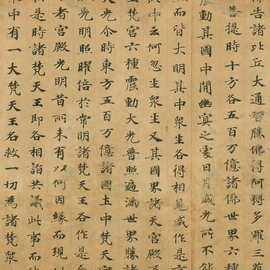 佛告諸比丘大通智勝佛得阿耨多羅三藐
菩提時十方各五百万億諸佛世界六種
震動其國中間幽冥之處日月威光所不能
而皆大明其中眾生各得相見咸作是
中云何忽生眾生又其國界諸天宮殿
梵宮六種震動大光普照遍滿世界勝諸
天光尒時東方五百万億諸國土中梵天
光明照曜倍於常明諸梵天王各作是
者宮殿光明昔所未有以何因緣而現
是時諸梵天王即各相詣共議此事而
眾中有一大梵天王名救一切為諸梵眾